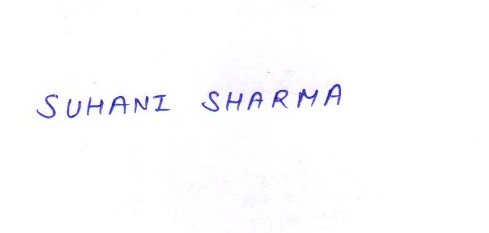 SUHANI SHARMA